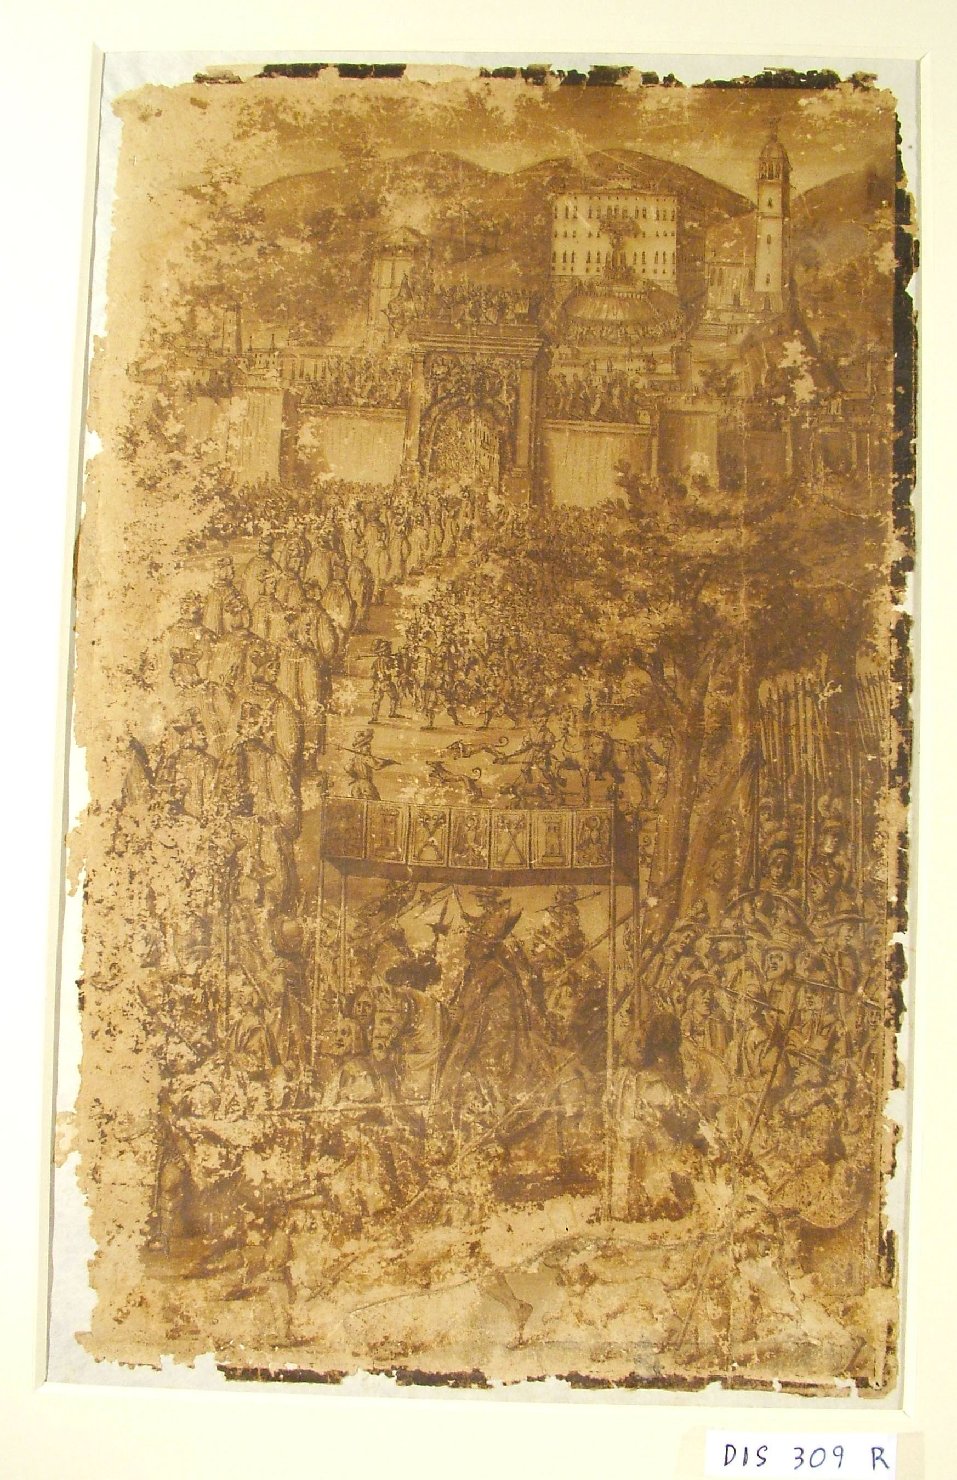 DIS 309 R